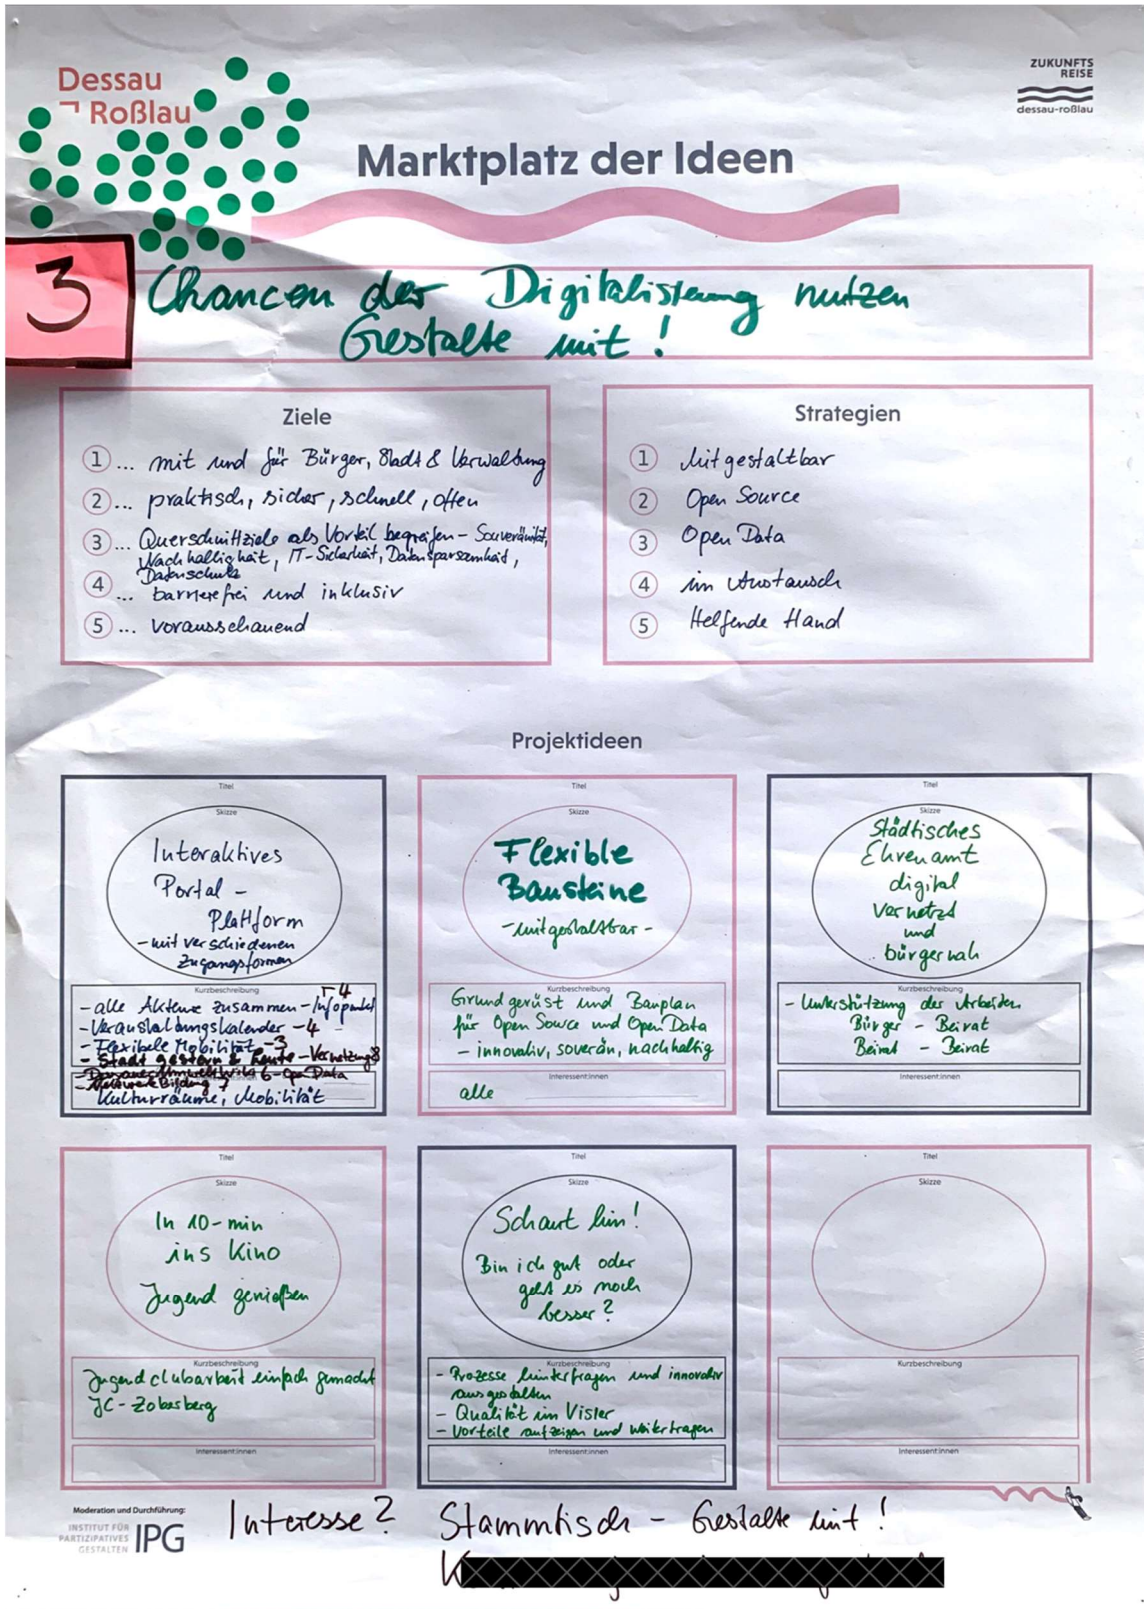 Dessau
Roßlau
ZUKUNFTS
REISE
dessau-roßlau
Marktplatz der Ideen
3
Chancen der Digitalisierung nutzen
Gestalte mit!
Ziele
1 ... mit und für Bürger, Stadt & Verwaltung
2 ... praktisch, sicher, schnell, offen
3 ... Querschnittziele als Vorteil begreifen - Souveränität,
Nachhaltigkeit, IT-Sicherheit, Datensparsamkeit,
Datenschutz
4 ... barrierefrei und inklusiv
5 ... vorausschauend
Strategien
1 Mitgestaltbar
2 Open Source
3 Open Data
4 im Austausch
5 Helfende Hand
Projektideen
Titel
Skizze
Interaktives
Portal -
Plattform
- mit verschiedenen
Zugangsformen
Kurzbeschreibung
- alle Akteure zusammen - Infopunkt
4
- Veranstaltungskalender - 4
- Flexibele Mobilität - 3
- Stadt gestern & heute - Vernetzung 8
6 - Open Data
- Netzwerk Bildung 7
Kulturräume, Mobilität
Titel
Skizze
Flexible
Bausteine
- mitgestaltbar -
Kurzbeschreibung
Grundgerüst und Bauplan
für Open Source und Open Data
- innovativ, soverän, nachhaltig
Interessent:innen
alle
Titel
Skizze
Städtisches
Ehrenamt
digital
vernetzt
und
bürgernah
Kurzbeschreibung
- Unterstützung der Arbeiten
Bürger - Beirat
Beirat - Beirat
Interessent:innen
Titel
Skizze
In 10-min
ins Kino
Jugend genießen
Kurzbeschreibung
Jugendclubarbeit einfach gemacht
JC - Zoberberg
Interessent:innen
Titel
Skizze
Schaut hin!
Bin ich gut oder
geht es noch
besser?
Kurzbeschreibung
- Prozesse hinterfragen und innovativ
ausgestalten
- Qualität im Visier
- Vorteile aufzeigen und weitertragen
Interessent:innen
Titel
Skizze
Kurzbeschreibung
Interessent:innen
Moderation und Durchführung:
INSTITUT FÜR
PARTIZIPATIVES
GESTALTEN
IPG
Interesse? Stammtisch - Gestalte mit!
K